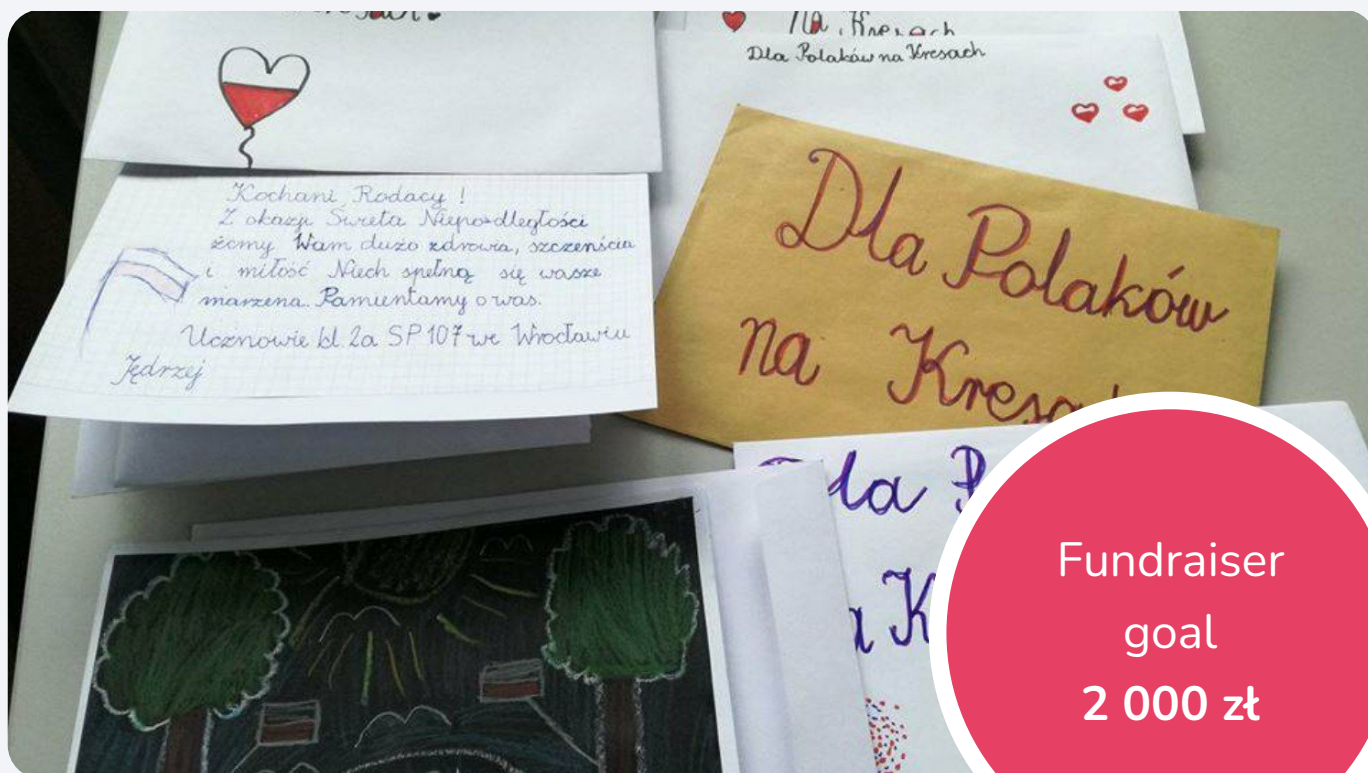 Na Kresach
Dla Polaków na Kresach
Kochani Rodacy !
Z okazji Święta Niepodległości
żomy Wam dużo zdrowia, szczenścia
i miłość Niech spełną się wasze
marzena. Pamientamy o was.
Ucznowie kl. 2a SP 107 we Wrocławiu
Jędrzej
Dla Polaków
na
Dla
Fundraiser
goal
2 000 zł